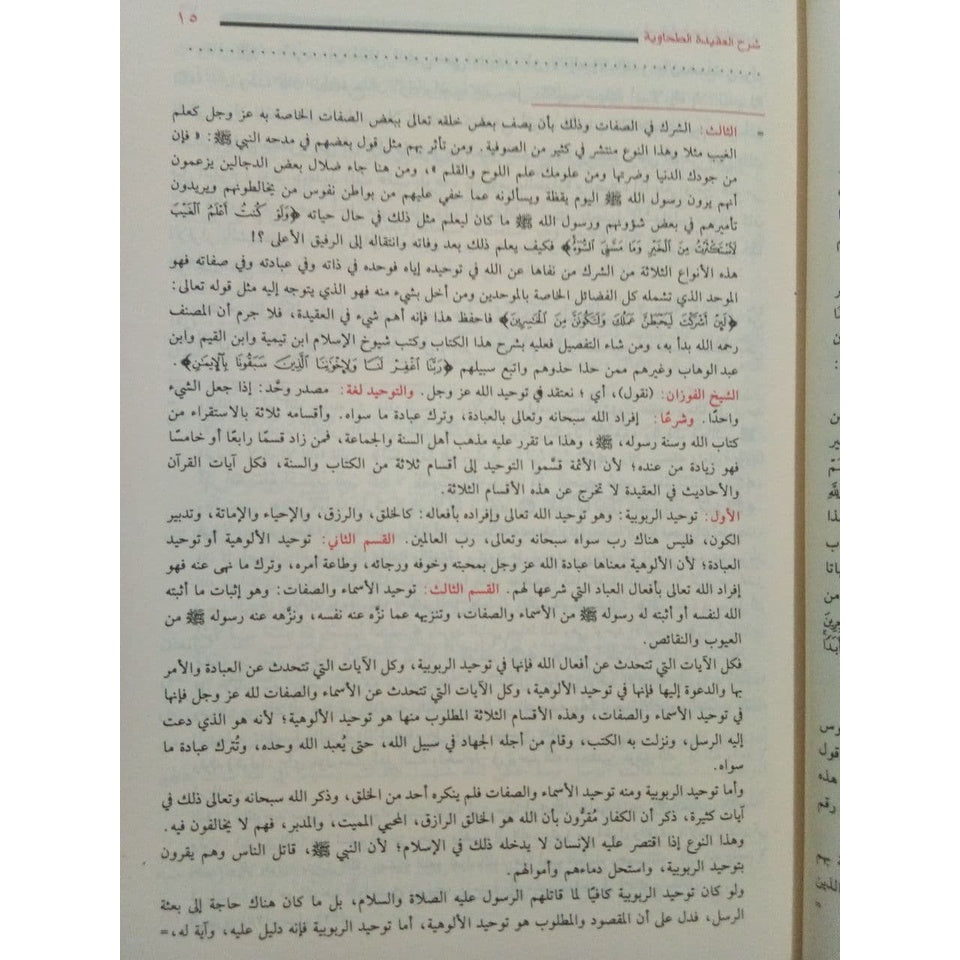 شرح العقيدة الطحاوية ١٥
= الثالث: الشرك في الصفات وذلك بأن يصف بعض خلقه تعالى ببعض الصفات الخاصة به عز وجل كعلم
الغيب مثلا وهذا النوع منتشر في كثير من الصوفية. ومن تأثر بهم مثل قول بعضهم في مدحه النبي ﷺ: « فإن
من جودك الدنيا وضرتها ومن علومك علم اللوح والقلم »، ومن هنا جاء ضلال بعض الدجالين يزعمون
أنهم يرون رسول الله ﷺ اليوم يقظة ويسألونه عما خفي عليهم من بواطن نفوس من يخالطونهم ويريدون
تأميرهم في بعض شؤونهم ورسول الله ﷺ ما كان ليعلم مثل ذلك في حال حياته ﴿وَلَوْ كُنتُ أَعْلَمُ الْغَيْبَ
لَاسْتَكْثَرْتُ مِنَ الْخَيْرِ وَمَا مَسَّنِيَ السُّوءُ﴾ فكيف يعلم ذلك بعد وفاته وانتقاله إلى الرفيق الأعلى ؟!
هذه الأنواع الثلاثة من الشرك من نفاها عن الله في توحيده إياه فوحده في ذاته وفي عبادته وفي صفاته فهو
الموحد الذي تشمله كل الفضائل الخاصة بالموحدين ومن أخل بشيء منه فهو الذي يتوجه إليه مثل قوله تعالى:
﴿لَئِنْ أَشْرَكْتَ لَيَحْبَطَنَّ عَمَلُكَ وَلَتَكُونَنَّ مِنَ الْخَاسِرِينَ﴾ فاحفظ هذا فإنه أهم شيء في العقيدة، فلا جرم أن المصنف
رحمه الله بدأ به، ومن شاء التفصيل فعليه بشرح هذا الكتاب وكتب شيوخ الإسلام ابن تيمية وابن القيم وابن
عبد الوهاب وغيرهم ممن حذا حذوهم واتبع سبيلهم ﴿رَبَّنَا اغْفِرْ لَنَا وَلِإِخْوَانِنَا الَّذِينَ سَبَقُونَا بِالْإِيمَٰنِ﴾ .
الشيخ الفوزان: (نقول)، أي ؛ نعتقد في توحيد الله عز وجل. والتوحيد لغة: مصدر وحَّد: إذا جعل الشيء
واحدًا. وشرعًا: إفراد الله سبحانه وتعالى بالعبادة، وترك عبادة ما سواه. وأقسامه ثلاثة بالاستقراء من
كتاب الله وسنة رسوله، ﷺ، وهذا ما تقرر عليه مذهب أهل السنة والجماعة، فمن زاد قسمًا رابعًا أو خامسًا
فهو زيادة من عنده؛ لأن الأئمة قسَّموا التوحيد إلى أقسام ثلاثة من الكتاب والسنة، فكل آيات القرآن
والأحاديث في العقيدة لا تخرج عن هذه الأقسام الثلاثة.
الأول: توحيد الربوبية: وهو توحيد الله تعالى وإفراده بأفعاله: كالخلق، والرزق، والإحياء والإماتة، وتدبير
الكون، فليس هناك رب سواه سبحانه وتعالى، رب العالمين. القسم الثاني: توحيد الألوهية أو توحيد
العبادة؛ لأن الألوهية معناها عبادة الله عز وجل بمحبته وخوفه ورجائه، وطاعة أمره، وترك ما نهى عنه فهو
إفراد الله تعالى بأفعال العباد التي شرعها لهم. القسم الثالث: توحيد الأسماء والصفات: وهو إثبات ما أثبته
الله لنفسه أو أثبته له رسوله ﷺ من الأسماء والصفات، وتنزيهه عما نزَّه عنه نفسه، ونزَّهه عنه رسوله ﷺ من
العيوب والنقائص.
فكل الآيات التي تتحدث عن أفعال الله فإنها في توحيد الربوبية، وكل الآيات التي تتحدث عن العبادة والأمر
بها والدعوة إليها فإنها في توحيد الألوهية، وكل الآيات التي تتحدث عن الأسماء والصفات لله عز وجل فإنها
في توحيد الأسماء والصفات، وهذه الأقسام الثلاثة المطلوب منها هو توحيد الألوهية؛ لأنه هو الذي دعت
إليه الرسل، ونزلت به الكتب، وقام من أجله الجهاد في سبيل الله، حتى يُعبد الله وحده، وتُترك عبادة ما
سواه.
وأما توحيد الربوبية ومنه توحيد الأسماء والصفات فلم ينكره أحد من الخلق، وذكر الله سبحانه وتعالى ذلك في
آيات كثيرة، ذكر أن الكفار مُقرُّون بأن الله هو الخالق الرازق، المحيي المميت، والمدبر، فهم لا يخالفون فيه.
وهذا النوع إذا اقتصر عليه الإنسان لا يدخله ذلك في الإسلام؛ لأن النبي ﷺ، قاتل الناس وهم يقرون
بتوحيد الربوبية، واستحل دماءهم وأموالهم.
ولو كان توحيد الربوبية كافيًا لما قاتلهم الرسول عليه الصلاة والسلام، بل ما كان هناك حاجة إلى بعثة
الرسل، فدل على أن المقصود والمطلوب هو توحيد الألوهية، أما توحيد الربوبية فإنه دليل عليه، وآية له، =